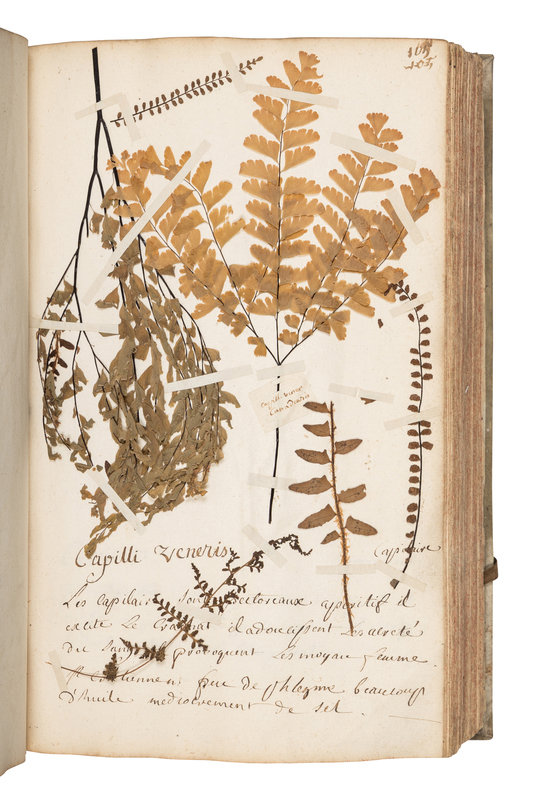 165
Capill. vener.
Canadensis
Capilli Veneris
Capilaire
Les Capilaire sont pectoreaux aperitif il
excite le Crachat il adoucissent les acreté
du sang provoquent Les moyau femme.
Contiennent peu de phlegme beaucoup
D'huile mediocrement de sel.